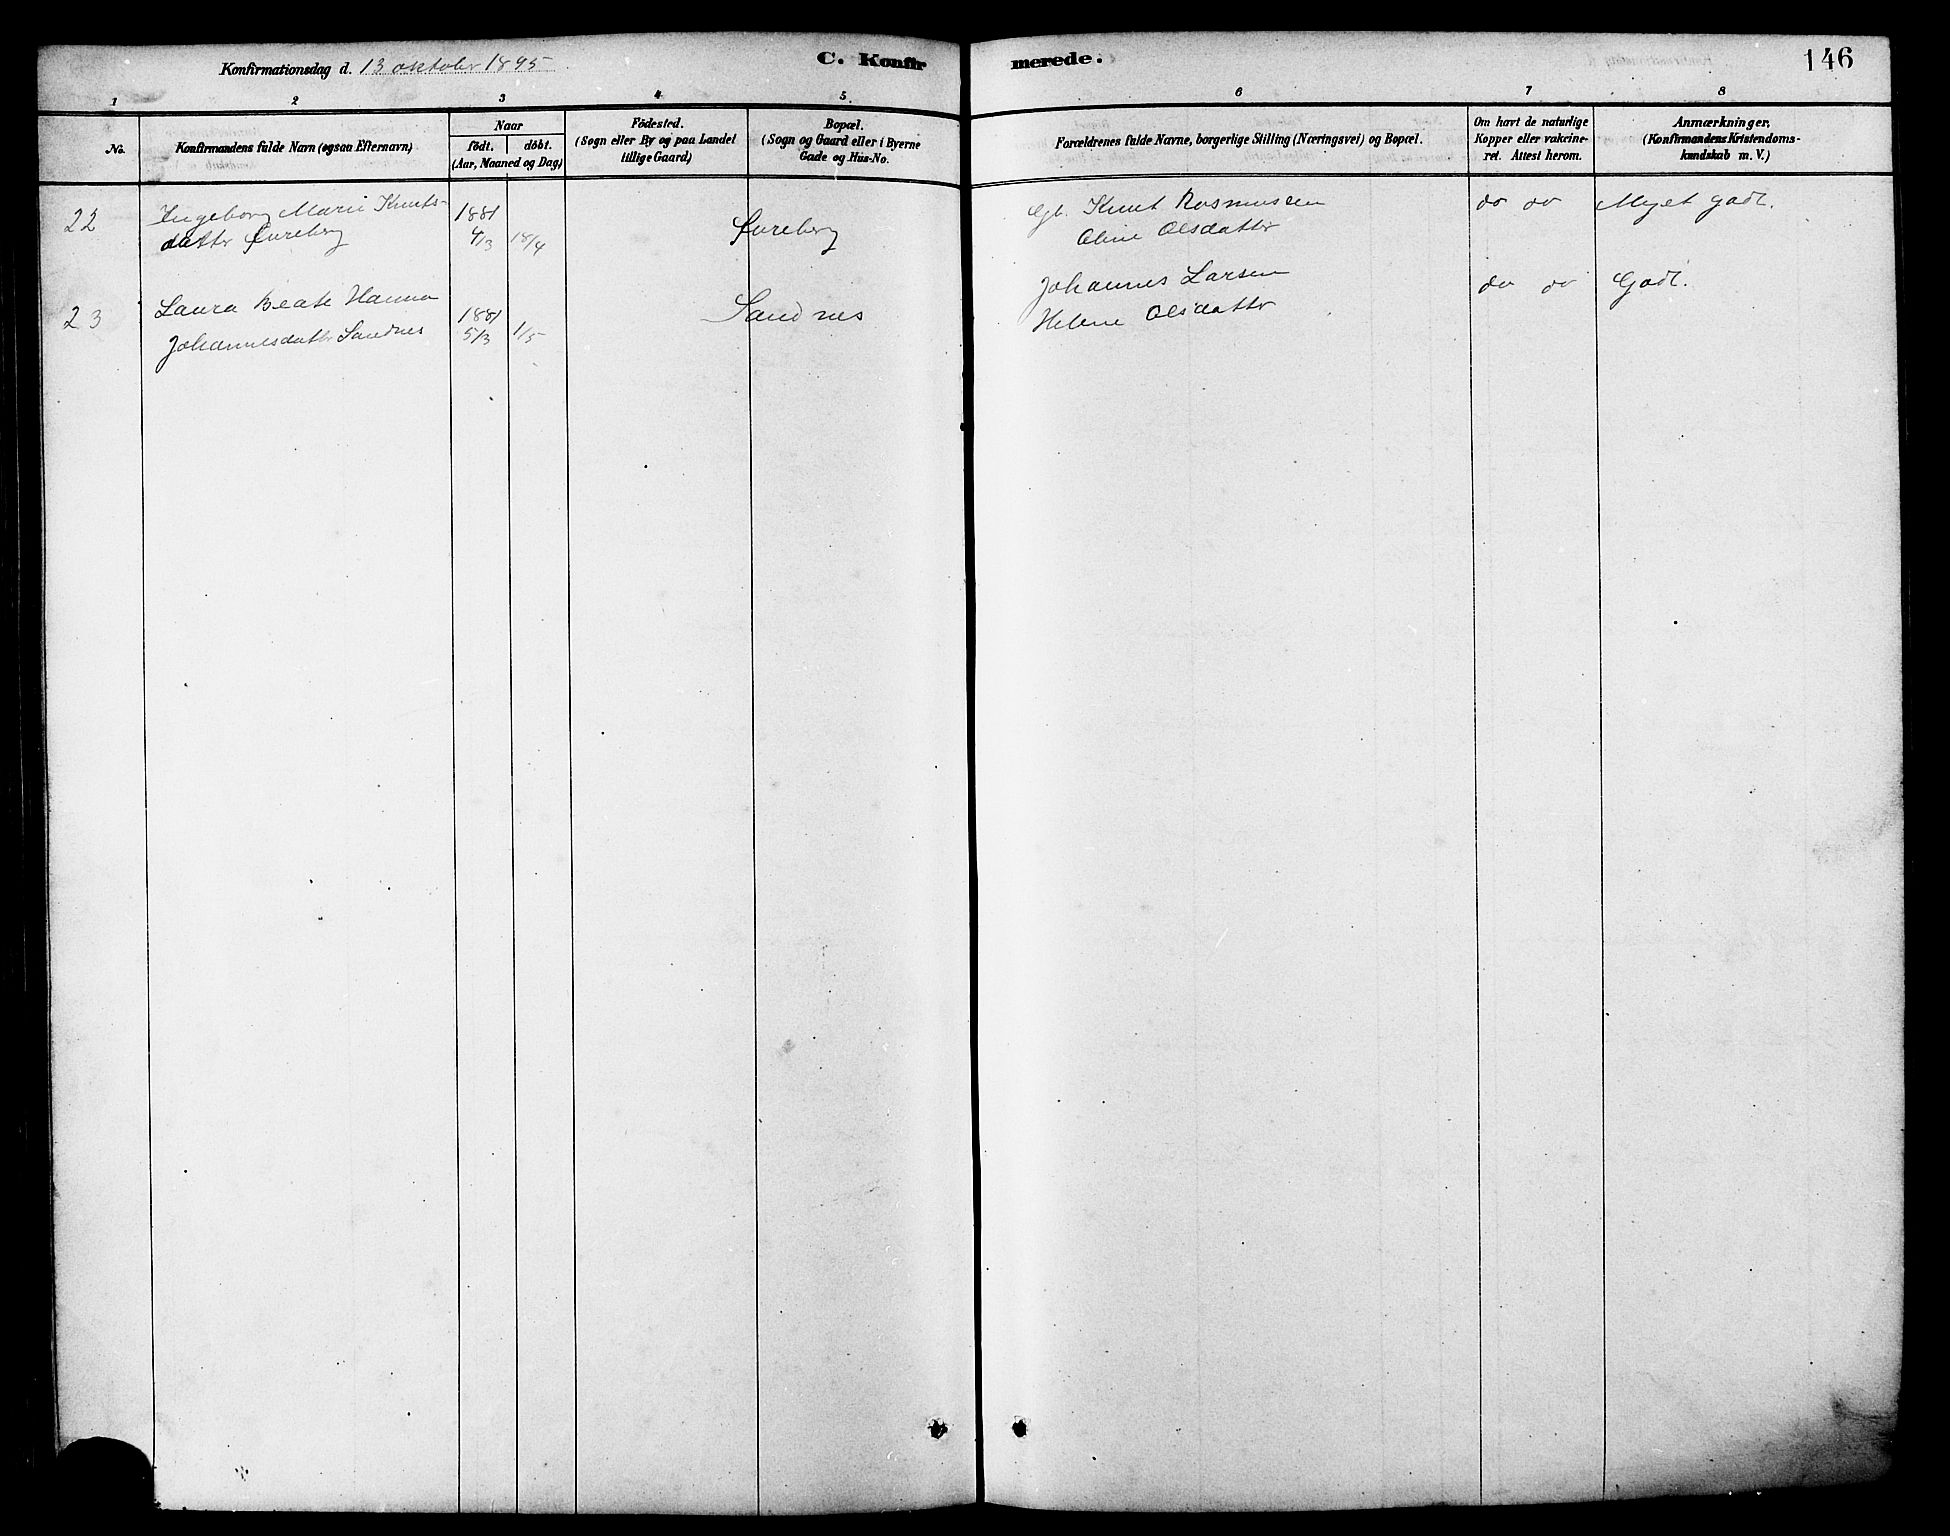 Konfirmationsdag d. 13 oktober 1895
C. Konfirmerede.
146
1 2 3 4 5 6 7 8
No.
Konfirmandens fulde Navn (ogsaa Efternavn)
Naar
födt. döbt.
(Aar, Maaned og Dag)
Födested.
(Sogn eller By og paa Landet
tillige Gaard)
Bopæl.
(Sogn og Gaard eller i Byerne
Gade og Hus-No.
Forældrenes fulde Navne, borgerlige Stilling (Næringsvei) og Bopæl.
Om havt de naturlige
Kopper eller vakcine-
ret. Attest herom.
Anmærkninger,
(Konfirmandens Kristendoms-
kundskab m. V.)
22 Ingeborg Marie Knuts- 1881 Gbr. Knut Rasmussen do do Meget godt.
datter Øureberg 4/3 18/4 Øureberg Oline Olsdatter
23 Laura Beate Hanna 1881 Sandnes Johannes Larsen do do Godt.
Johannesdatter Sandnes 5/3 1/5 Helene Olsdatter